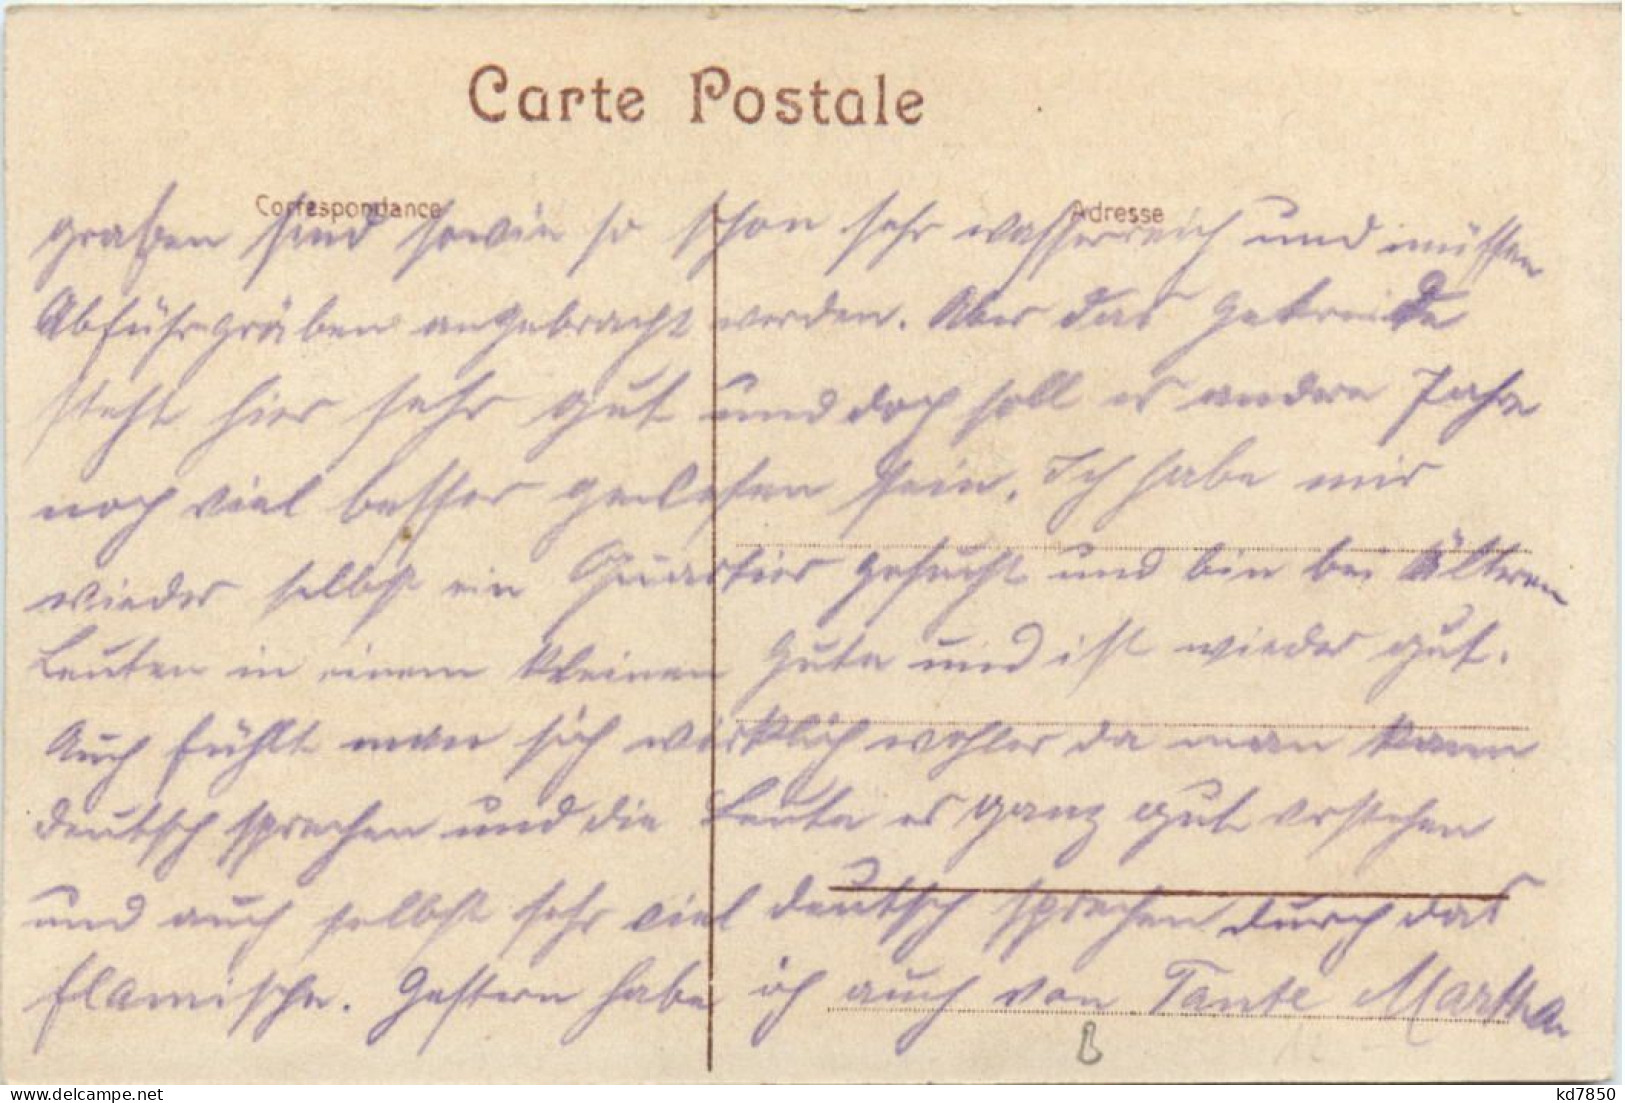 Carte Postale
Correspondance
Adresse
graben sind sowie so schon sehr wasserreich und müssen
Abführgräben angebracht werden. Aber das Getreide
steht hier sehr gut und doch soll es andere Jahre
noch viel besser gewesen sein. Ich habe mir
wieder selbst ein Quartier gesucht und bin bei älteren
Leuten in einem kleinen Gute und ist wieder gut.
Auch fühlt man sich wirklich wohler da man kann
deutsch sprechen und die Leute es ganz gut verstehen
und auch selbst sehr viel deutsch sprechen durch das
flamische. Gestern habe ich auch von Tante Martha
B
kd7850